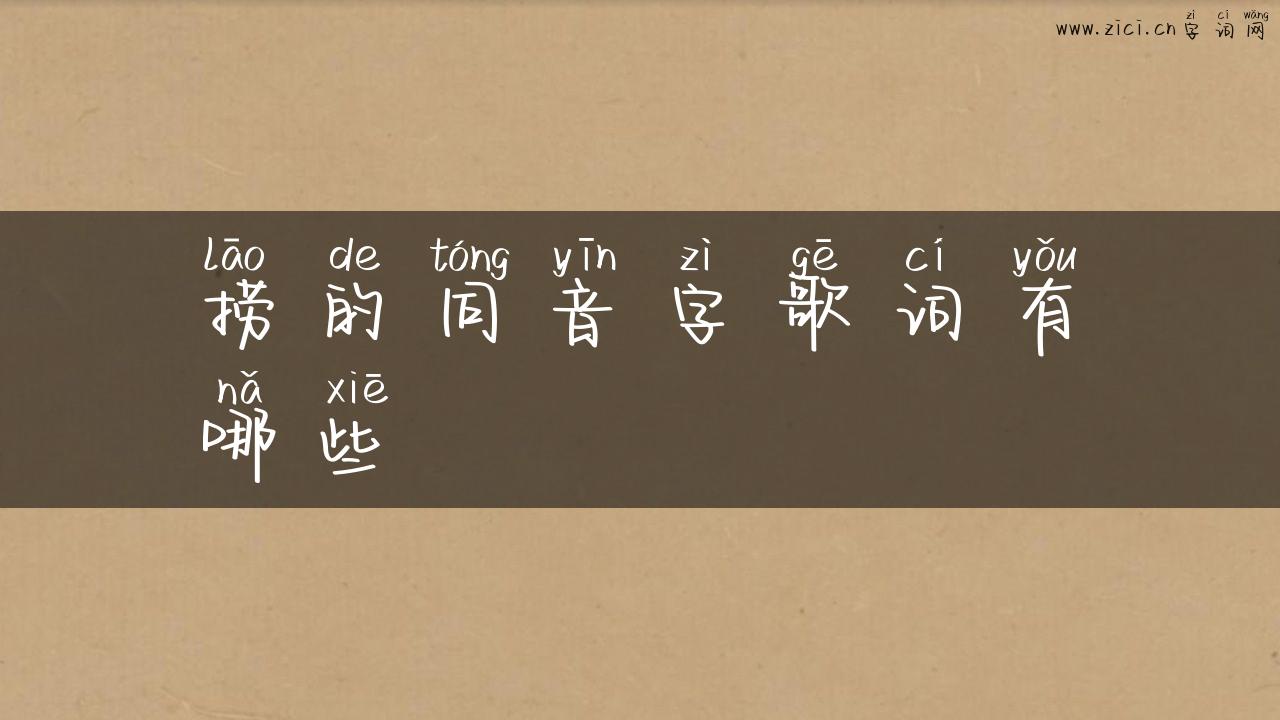 zì cí wǎng
www.zici.cn 字 词 网
lāo de tóng yīn zì gē cí yǒu
捞 的 同 音 字 歌 词 有
nǎ xiē
哪 些